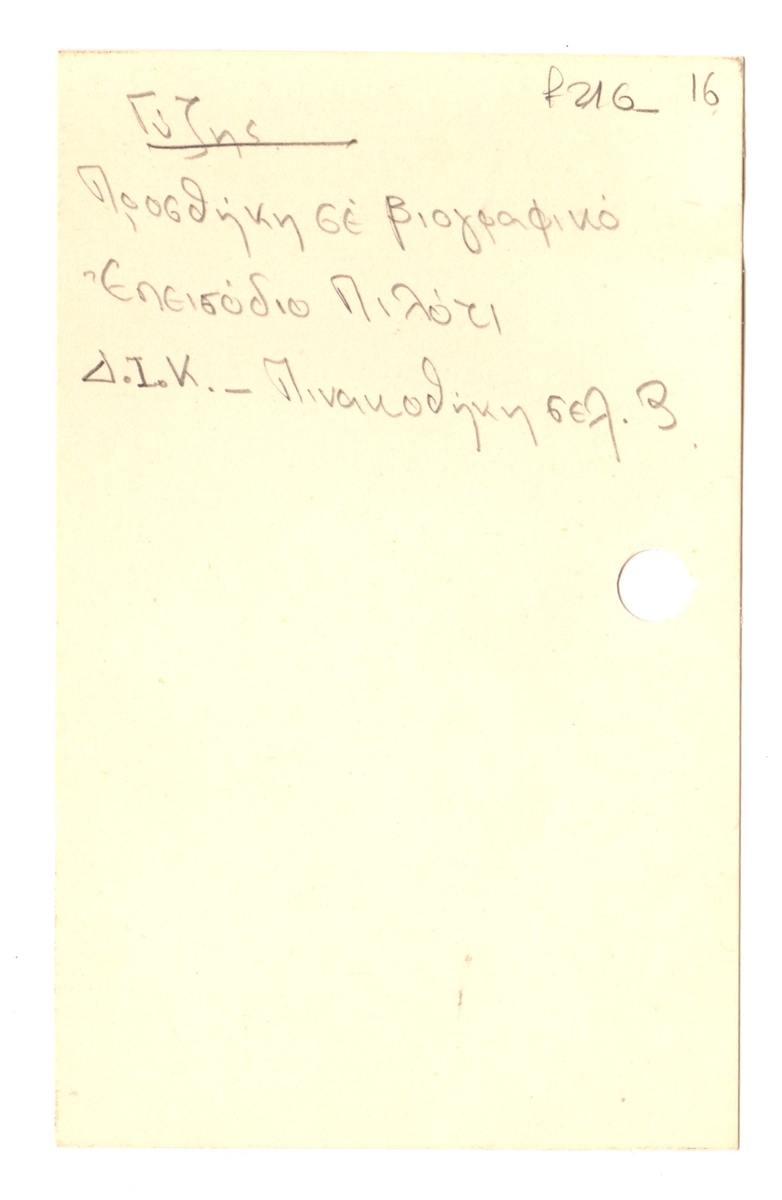 16
Γύζης
Προσθήκη σέ βιογραφικό
Ἐπεισόδιο Πιλότι
Δ.Ι.Κ. – Πινακοθήκη σελ. Β